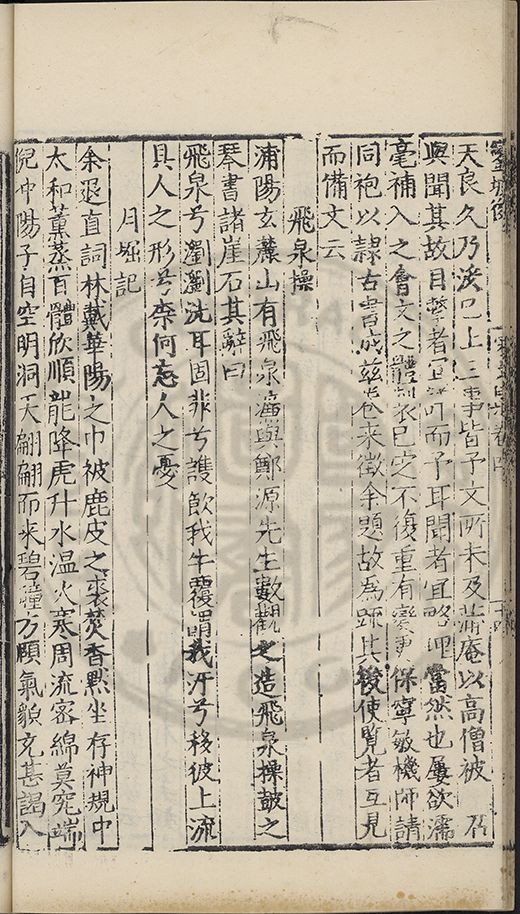 天良久乃泱已上三事皆予文所未及蒲庵以高僧被召
與聞其故目擊者宜詳而予耳聞者宜略理當然也屢欲濡
毫補入之會文之體製已定不復重有變更保寧敏機師請
同袍以隷古書成茲卷來徵余題故為疏其後使覽者互見
而備文云
飛泉操
浦陽玄麓山有飛泉濂與鄭源先生數觀之造飛泉操鼓之
琴書諸崖石其辭曰
飛泉兮瀏瀏洗耳固非兮誰飲我牛覆謂我汙兮移彼上流
具人之形兮柰何忘人之憂
月窟記
余退直詞林戴華陽之巾被鹿皮之裘焚香默坐存神規中
太和薰蒸百體欣順龍降虎升水温火寒周流密綿莫究端
倪沖陽子自空明洞天翩翩而來碧瞳方頤氣貌充甚謁入